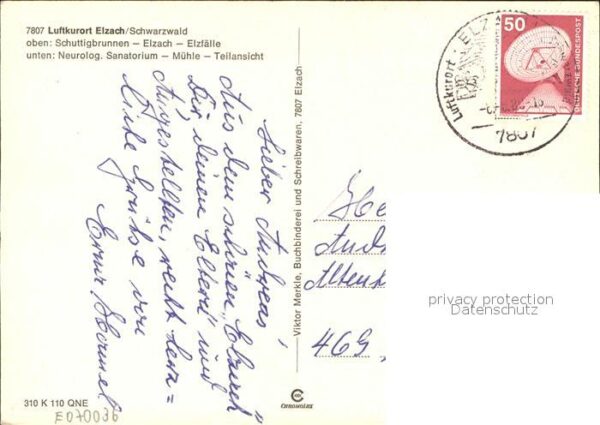 7807 Luftkurort Elzach/Schwarzwald
oben: Schuttigbrunnen – Elzach – Elzfälle
unten: Neurolog. Sanatorium – Mühle – Teilansicht
Lieber Andreas!
Aus dem schönen "Elzach"
Dir, deinen Eltern und
Angestellten, recht herz=
liche Grüße von
Viktor Merkle, Buchbinderei und Schreibwaren, 7807 Elzach
Luftkurort ELZ
7807
50
DEUTSCHE BUNDESPOST
He
And
Alten
469
privacy protection
Datenschutz
310 K 110 QNE
E070036
CHROMOLUX